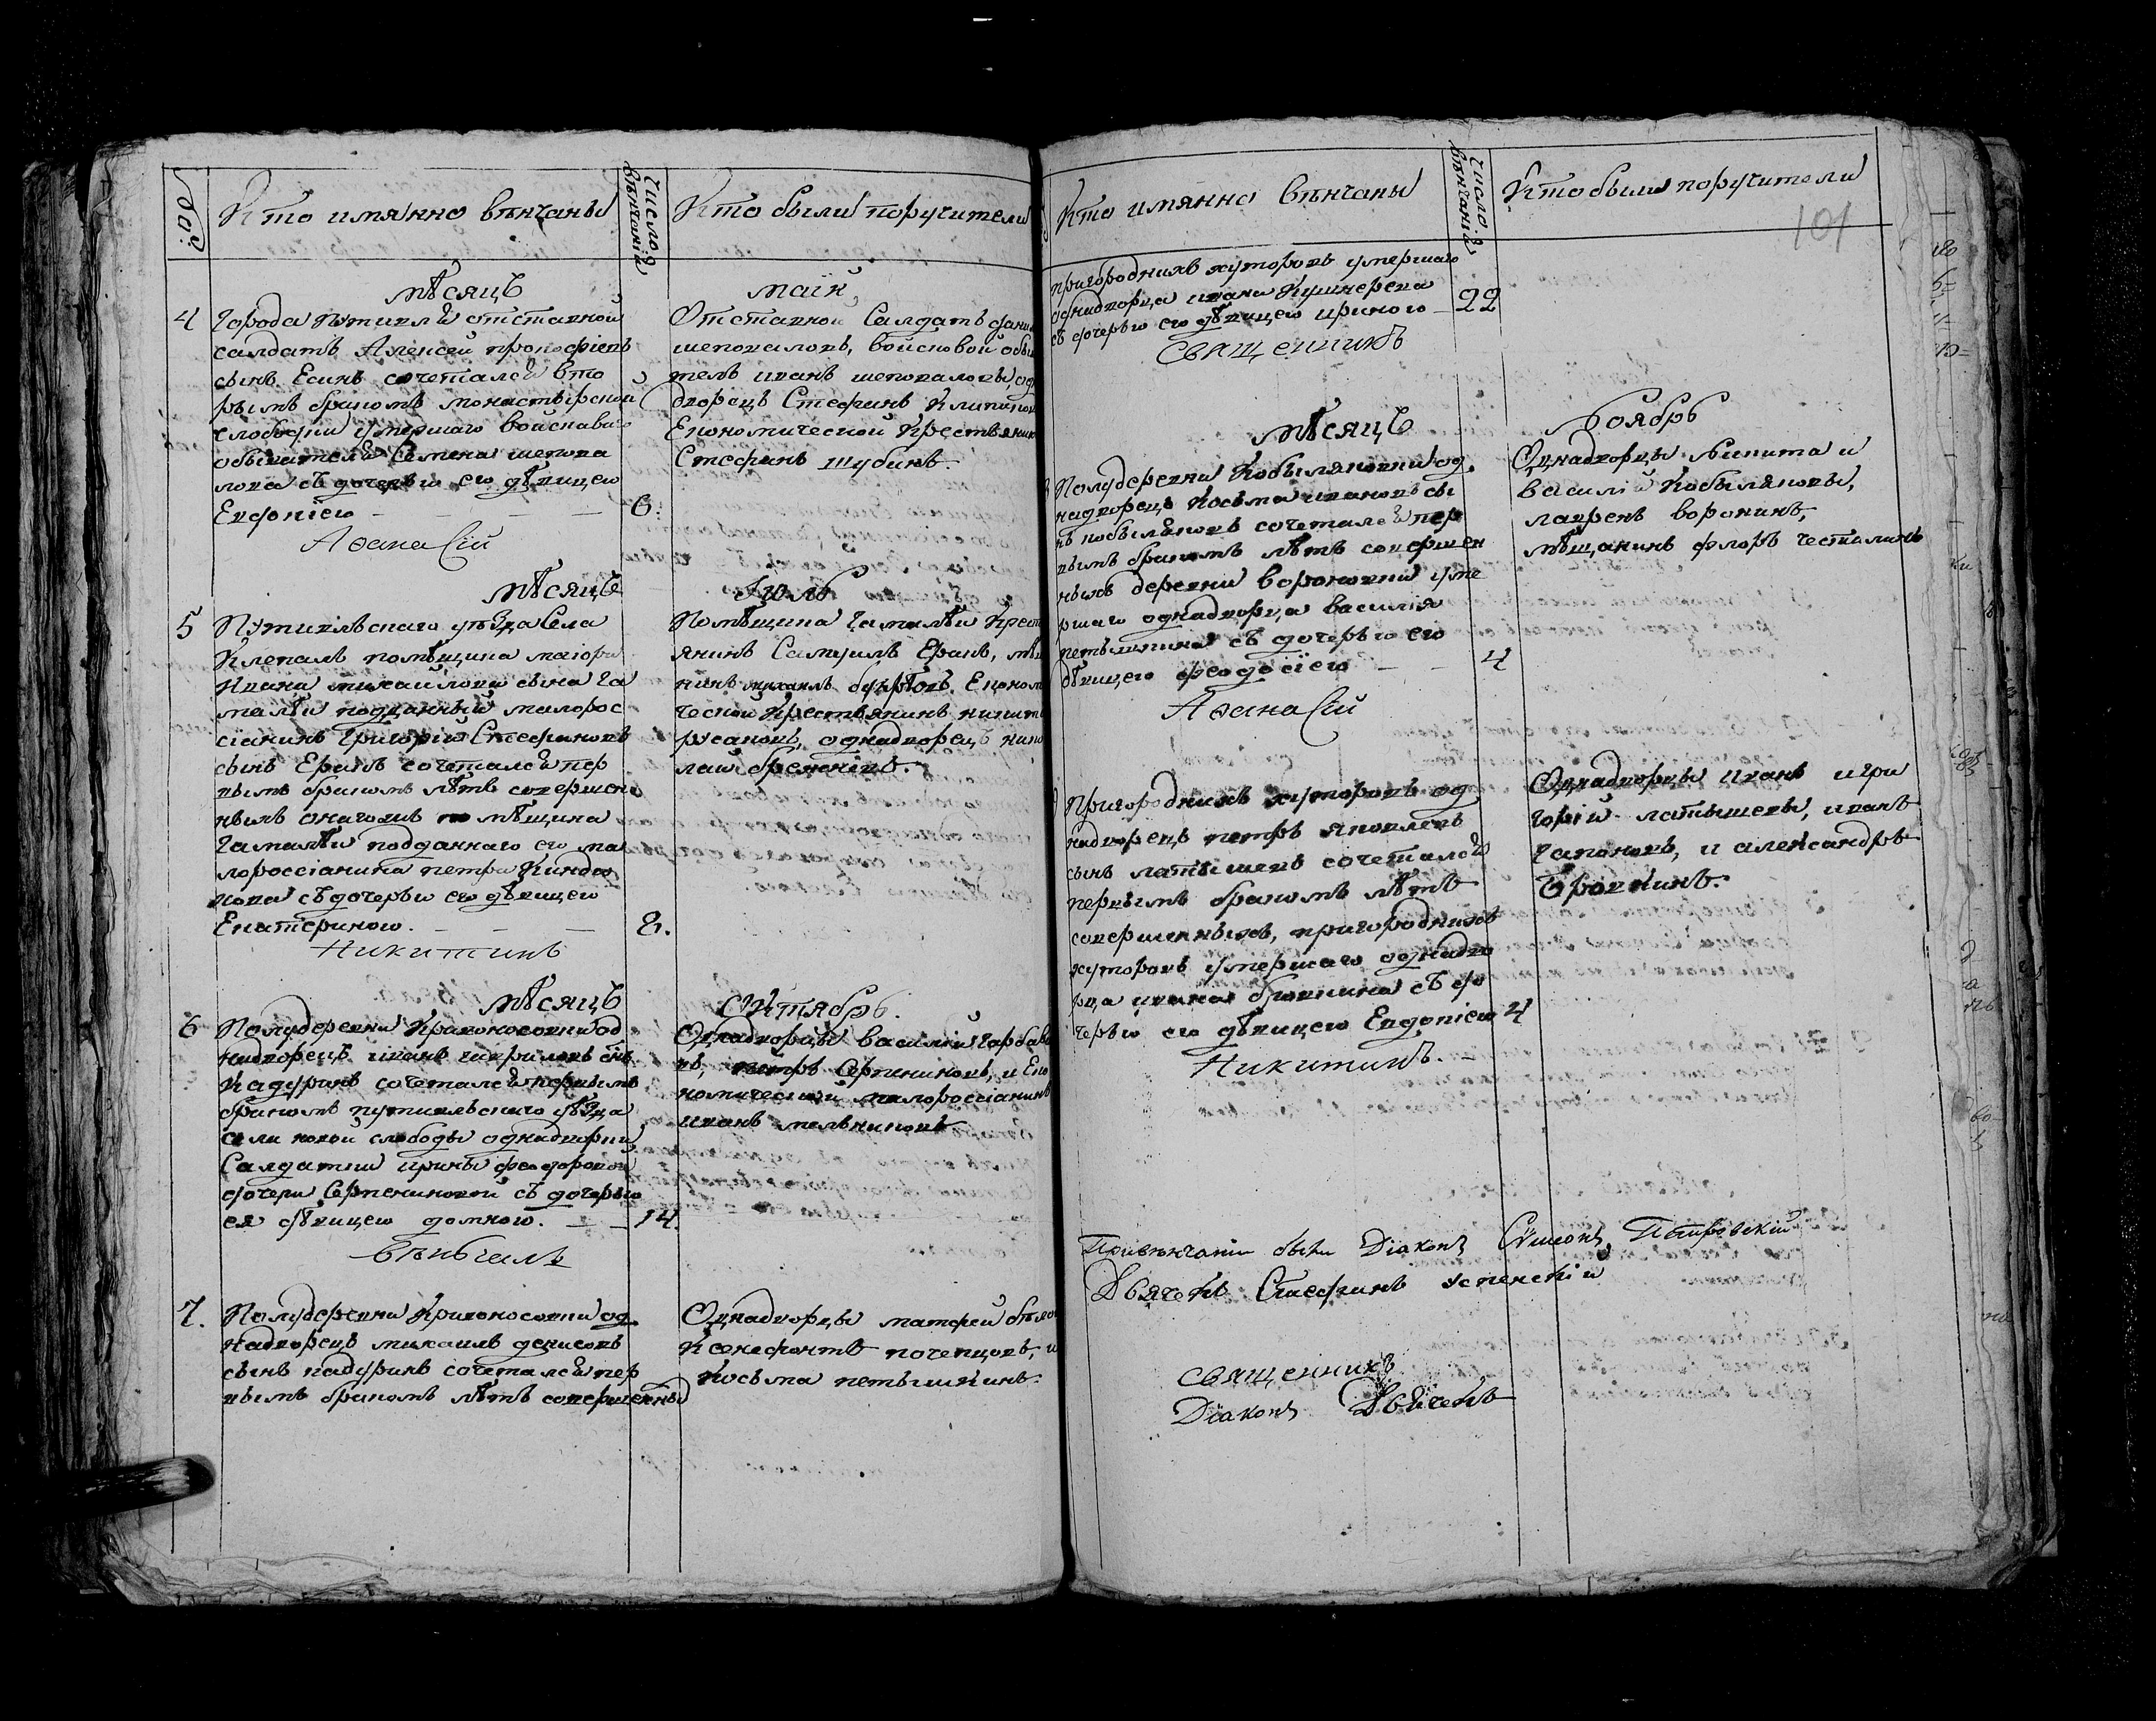 Кто имянно вѣнчаны
Число вѣнчаній
Кто были поручители
мѣсяцъ
маій
4
города Путивля отставной
салдатъ Алексей прокофіевъ
сынъ Есинъ сочетался вто
рымъ бракомъ монастырской
слободки умершаго войсковаго
обывателя Семена шепова
лова съ дочерью его дѣвицею
Евдокіею
6.
Афанасій
Отставной Салдатъ
шеповаловъ, войсковой
тель иванъ шеповаловы,
дворецъ Стефанъ
Економической Крестьянин
Стефанъ шубинъ.
мѣсяцъ
Іюль
5
Путивльскаго уѣзда Села
Клепалъ помѣщика маіора
Ивана михайлова сына га
малѣи подданный малорос
сіянинъ Григорій Стефановъ
сынъ Еракъ сочетался пер
вымъ бракомъ лѣтъ совершен
ныхъ онагожъ помѣщика
Гамалѣи подданнаго его ма
лороссіянина петра
съ дочерью его дѣвицею
Екатериною.
8.
Никитинъ
Помѣщика Гамалѣи Крест
янинъ Самуилъ Еракъ,
нинъ михаилъ Економ
ческой Крестьянинъ никит
русановъ, однадворецъ нико
лай
мѣсяцъ
Сентябрь.
6
Полудеревни Кривоносовки од
надворецъ иванъ гавриловъ снъ
Кадуринъ сочетался первымъ
бракомъ путивльскаго уѣзда
села новой слободы однадворки
Салдатки ирины феодоровой
дочери Серпениновой съ дочерью
ея дѣвицею домною.
14
Вѣнчалъ
Однадворцы василій
въ, петръ Серпениновъ, и Еко
номической малороссіянинъ
иванъ мельниковъ
7.
Полудеревни Кривоносовки од
надворецъ михаилъ денисовъ
сынъ кадуринъ сочетался пер
вымъ бракомъ лѣтъ совершенны
Однадворцы матфей
Ксенофонтъ почепцовъ, и
Косьма петышкинъ.
Кто имянно вѣнчаны
Число вѣнчаній
Кто были поручители
101
пригородникъ хуторовъ умершаго
однадворца ивана Кушнерева
съ дочерью его дѣвицею ириною
22
Священникъ
мѣсяцъ
Ноябрь
Полудеревни Кобыляковки од
надворецъ Косьма ивановъ сы
нъ кобыляковъ сочетался пер
вымъ бракомъ лѣтъ совершен
ныхъ деревни вороновки уме
ршаго однадворца василія
петышкина съ дочерью его
дѣвицею феодосіею
4
Афанасій
Однадворцы Никита и
василій Кобыляковы,
лавренъ воронинъ,
мѣщанинъ федоръ
Пригородникъ хуторовъ од
надворецъ петръ яковлевъ
сынъ латышевъ сочетался
первымъ бракомъ лѣтъ
совершенныхъ, пригородникъ
хуторовъ умершаго однадво
рца ивана съ до
черью его дѣвицею Евдокіею
4
Никитинъ.
Однадворцы иванъ и гри
горій латышевы, иванъ
гапоновъ, и александръ
Привѣнчаніи были Діаконъ Сѵмеонъ Петровскій
Дьячекъ Стефанъ успенскій
священникъ
Діаконъ Дьячекъ